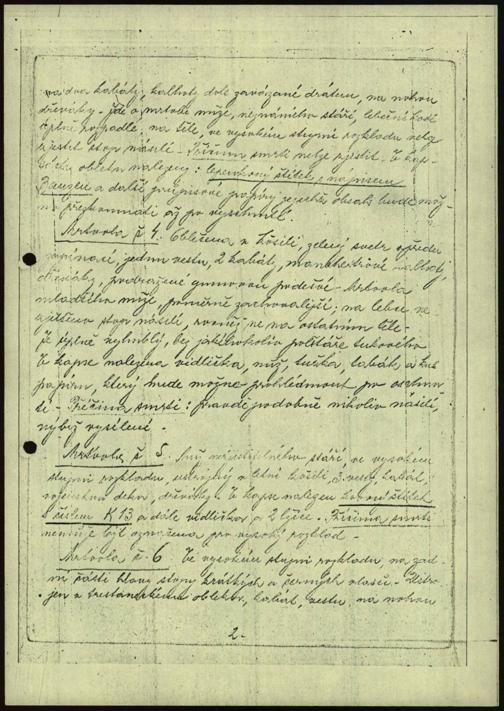 na dva kabáty, kalhoty dole zavázané drátem, na nohou
dřeváky - jde o mrtvolu muže, neznámého stáří, lebeční kosti
úplně rozpadlé, na těle, ve vysokém stupni rozkladu nelze
zjistit stop násilí. Příčinu smrti nelze zjistit. V kap-
sách obleku nalezeny: lepenkový štítek s nápisem
a další průpisové papíry jejichž obsah bude mož-
no překoumati až po vysušení.
Mrtvola č 4. Oblečena v košili, zelený svetr vpředu
zapínací, jednu vestu, 2 kabáty, manchestrové kalhoty,
dřeváky, podražené gumovou podešví - Mrtvola
mladšího muže, poměrně zachovalejší; na lebce ne
zjištěno stop násilí, rovněž ne na ostatním těle -
Je úplně vyhublý, bez jakéhokoliv polštáře tukového
V kapse nalezena vidlička, nůž, tužka, tabák, a kus
papíru, který bude možno prohlédnout po oschnu
tí - Příčina smrti: pravdě podobně nikoliv násilí,
nýbrž vysílení -
Mrtvola č 5. Muž nezjistitelného stáří, ve vysokém
stupni rozkladu, ustrojený v letní košili, vestu, kabát,
vojenskou deku, dřeváky. V kapse nalezen kovový štítek
s číslem K 13 a dále vidličkou a 2 lžíce. Příčina smrti
nemůže být označena pro vysoký rozklad -
Mrtvola č. 6 Ve vysokém stupni rozkladu, na zad-
ní části hlavy stopy krátkých a černých vlasů - Ustro-
jen v trestaneckém obleku, kabát, vestu, na nohou
2.